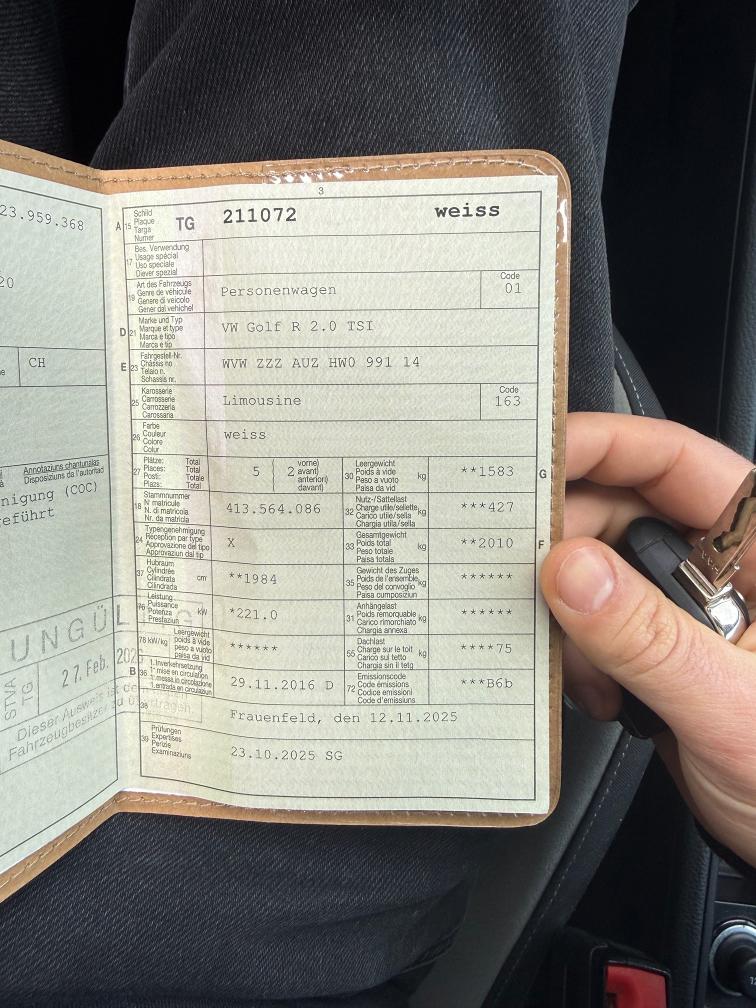 23.959.368
20
CH
Annotaziuns chantunalas
Disposiziuns da l'autoritad
nigung (COC)
eführt
UNGÜL
STVA TG
27. Feb. 202
Dieser Ausweis ist
Fahrzeugbesitzer zu übertragen.
3
A 15 Schild Plaque Targa Numer TG 211072 weiss
17 Bes. Verwendung Usage spécial Uso speciale Diever spezial
19 Art des Fahrzeugs Genre de véhicule Genere di veicolo Gener dal vehichel Personenwagen Code 01
D 21 Marke und Typ Marque et type Marca e tipo Marca e tip VW Golf R 2.0 TSI
E 23 Fahrgestell-Nr. Châssis no Telaio n. Schassis nr. WVW ZZZ AUZ HW0 991 14
25 Karosserie Carrosserie Carrozzeria Carossaria Limousine Code 163
26 Farbe Couleur Colore Colur weiss
27 Plätze: Total Places: Total Posti: Totale Plazs: Total 5 2 vorne) avant) anteriori) davant) 30 Leergewicht Poids à vide Peso a vuoto Paisa da vid kg **1583 G
18 Stammnummer N° matricule N. di matricola Nr. da matricla 413.564.086 32 Nutz-/Sattellast Charge utile/sellette Carico utile/sella Chargia utila/sella kg ***427
24 Typengenehmigung Réception par type Approvazione del tipo Approvaziun dal tip X 33 Gesamtgewicht Poids total Peso totale Paisa totala kg **2010 F
37 Hubraum Cylindrée Cilindrata Cilindrada cm **1984 35 Gewicht des Zuges Poids de l'ensemble Peso del convoglio Paisa cumposiziun kg ******
76 Leistung Puissance Potenza Prestaziun kW *221.0 31 Anhängelast Poids remorquable Carico rimorchiato Chargia annexa kg ******
78 kW/kg Leergewicht poids à vide peso a vuoto paisa da vid ****** 55 Dachlast Charge sur le toit Carico sul tetto Chargia sin il tetg kg ****75
B 36 1.Inverkehrsetzung 1ère mise en circulation 1.messa in circolazione 1.entrada en circulaziun 29.11.2016 D 72 Emissionscode Code émissions Codice emissioni Code d'emissiuns ***B6b
38 Frauenfeld, den 12.11.2025
39 Prüfungen Expertises Perizie Examinaziuns 23.10.2025 SG